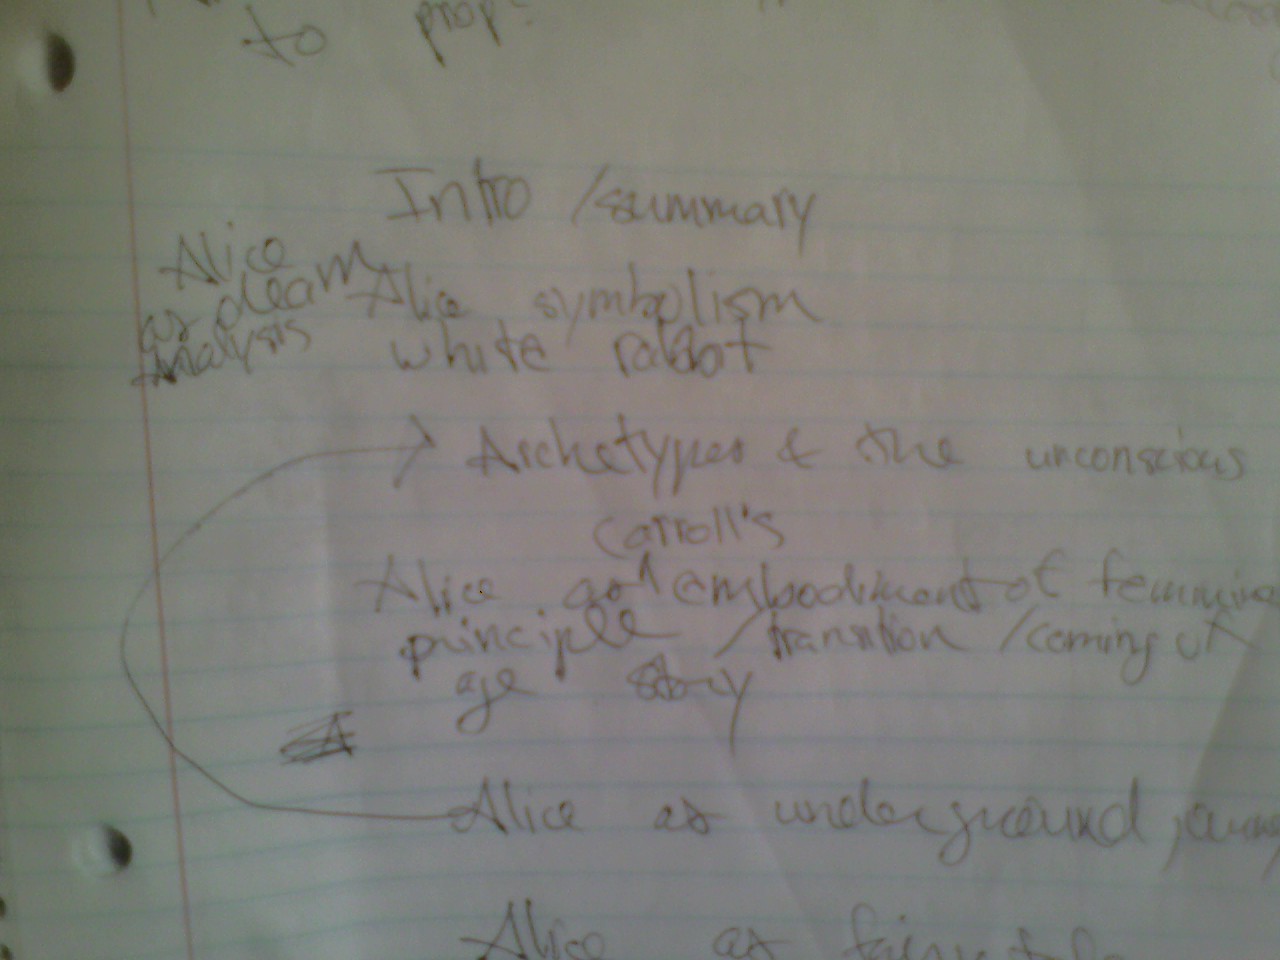 to prop?
Intro /summary
Alice
as dream
analysis
Alice symbolism
white rabbit
Archetypes & the unconscious
Carroll's
Alice as ^ embodiment of feminine
principle / transition / coming of
age story
Alice as underground
Alice as